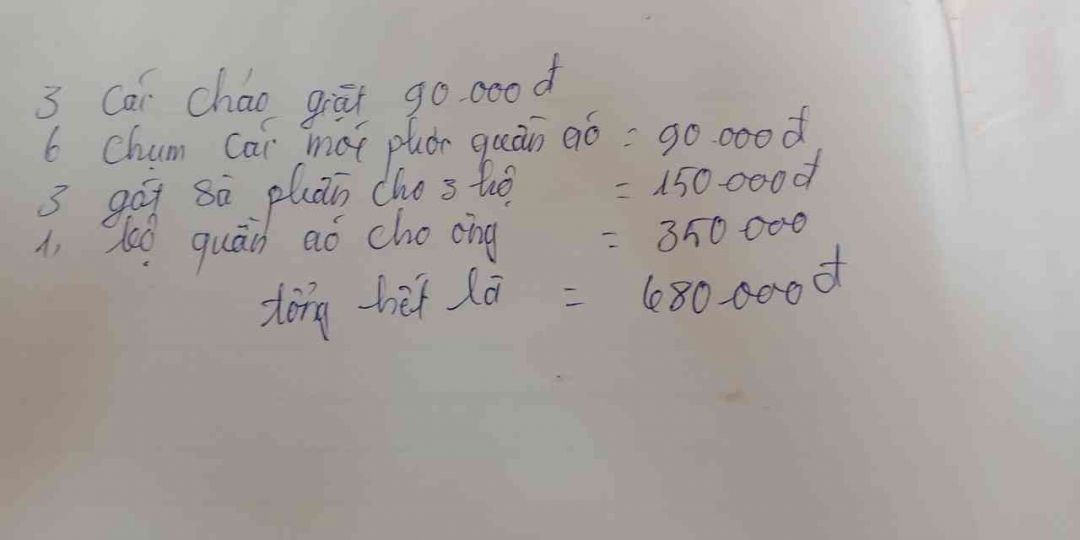 3 Cái cháo giặt 90.000đ
6 chụm cái móc phơi quần áo = 90.000đ
3 gói sà phần cho 3 hộ = 150.000đ
1, bộ quần aó cho ông = 350 000
tổng hết là = 680.000đ